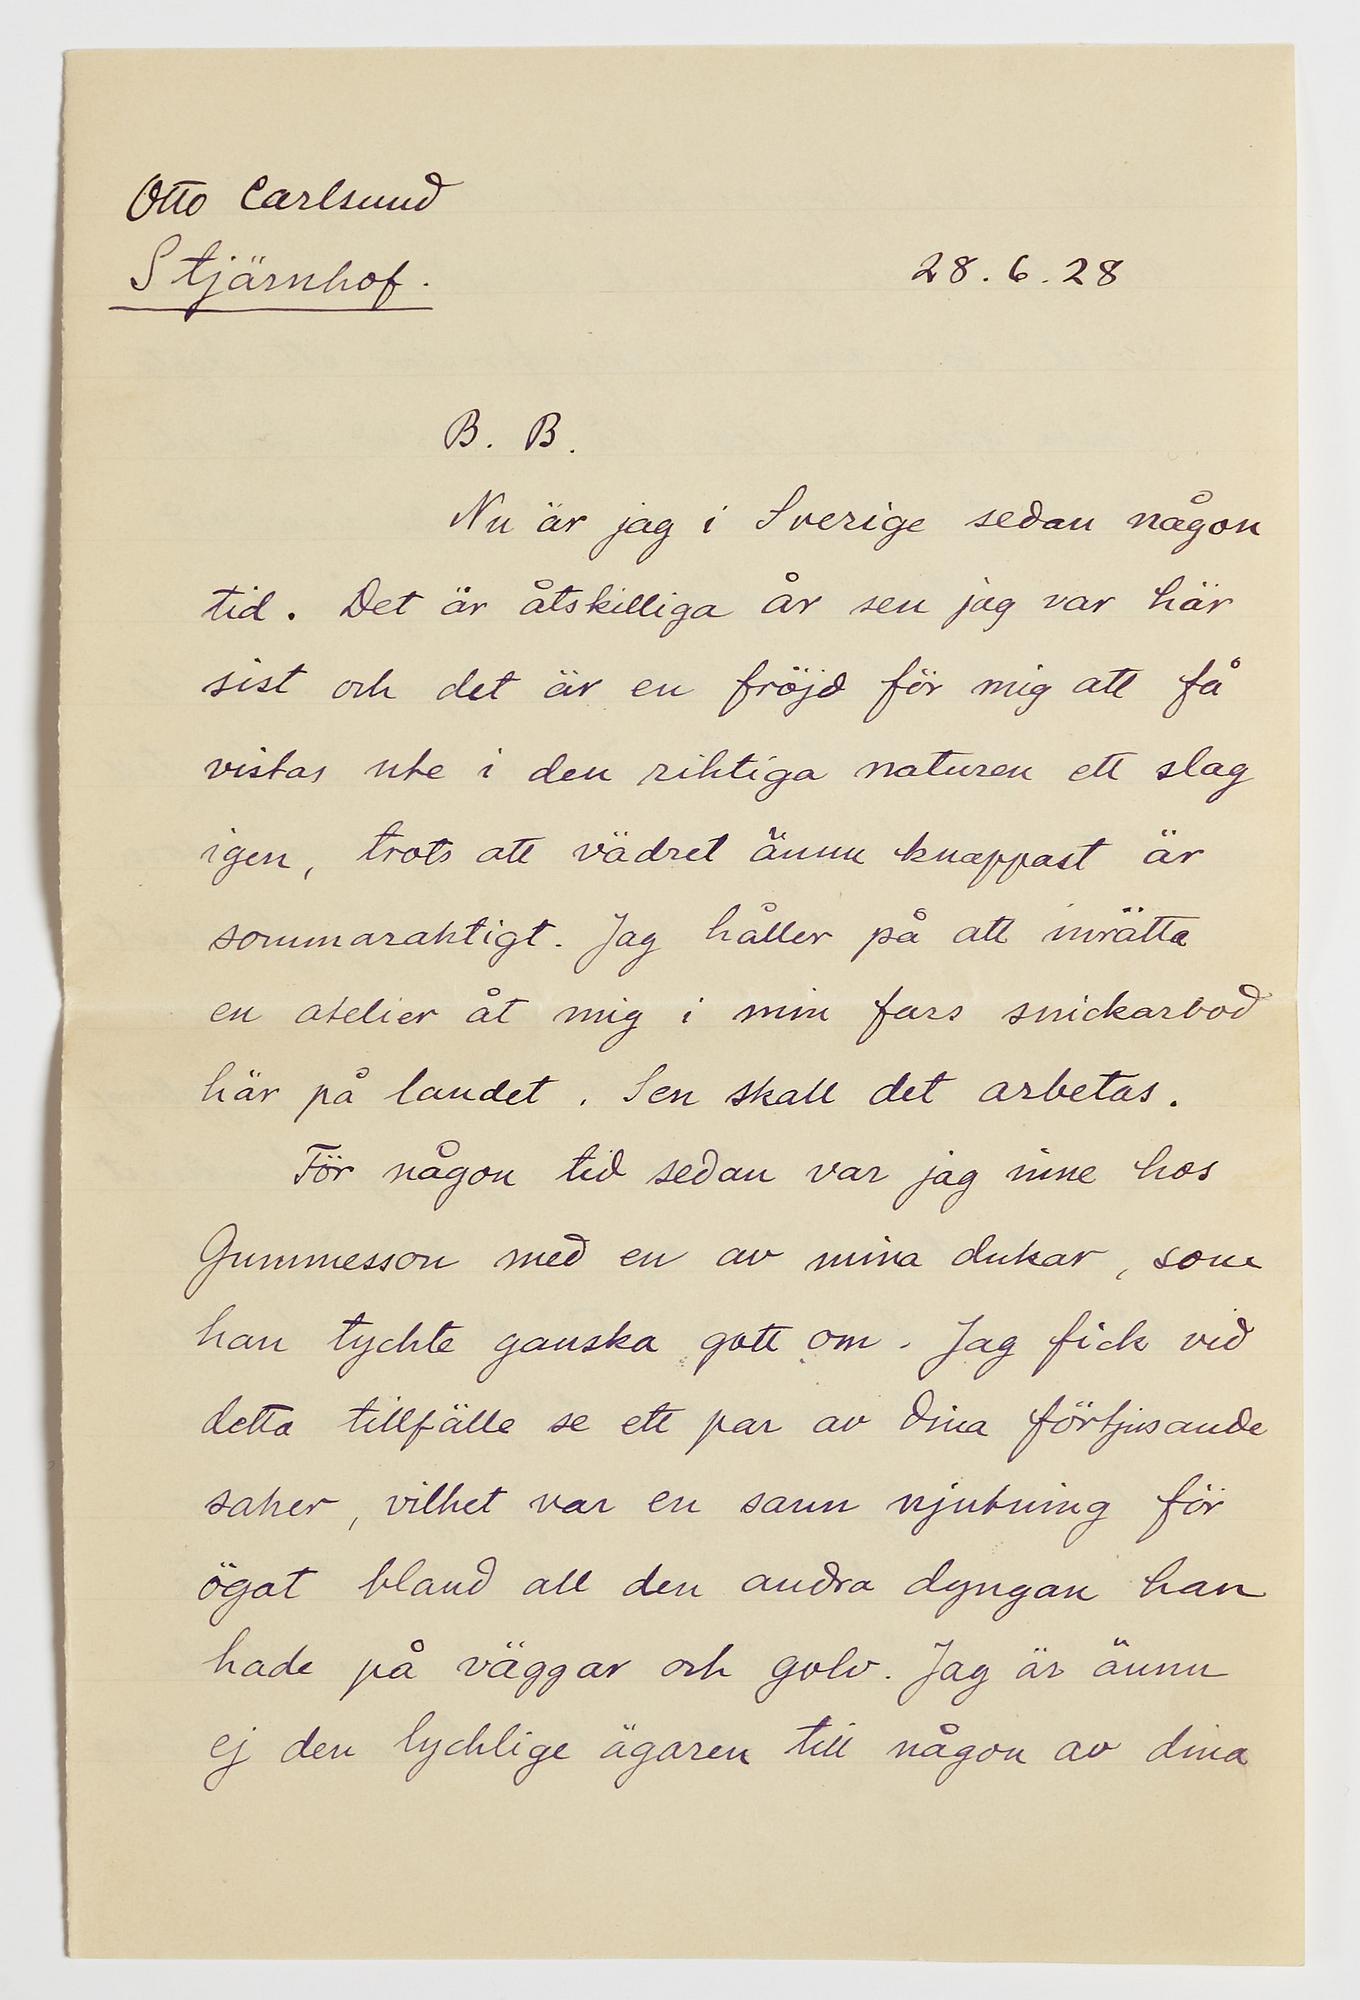 Otto Carlsund
Stjärnhof.
28.6.28
B. B.
Nu är jag i Sverige sedan någon
tid. Det är åtskilliga år sen jag var här
sist och det är en fröjd för mig att få
vistas ute i den riktiga naturen ett slag
igen, trots att vädret ännu knappast är
sommaraktigt. Jag håller på att inrätta
en atelier åt mig i min fars snickarbod
här på landet. Sen skall det arbetas.
För någon tid sedan var jag inne hos
Gummesson med en av mina dukar, som
han tyckte ganska gott om. Jag fick vid
detta tillfälle se ett par av dina förtjusande
saker, vilket var en sann njutning för
ögat bland all den andra dyngan han
hade på väggar och golv. Jag är ännu
ej den lycklige ägaren till någon av dina